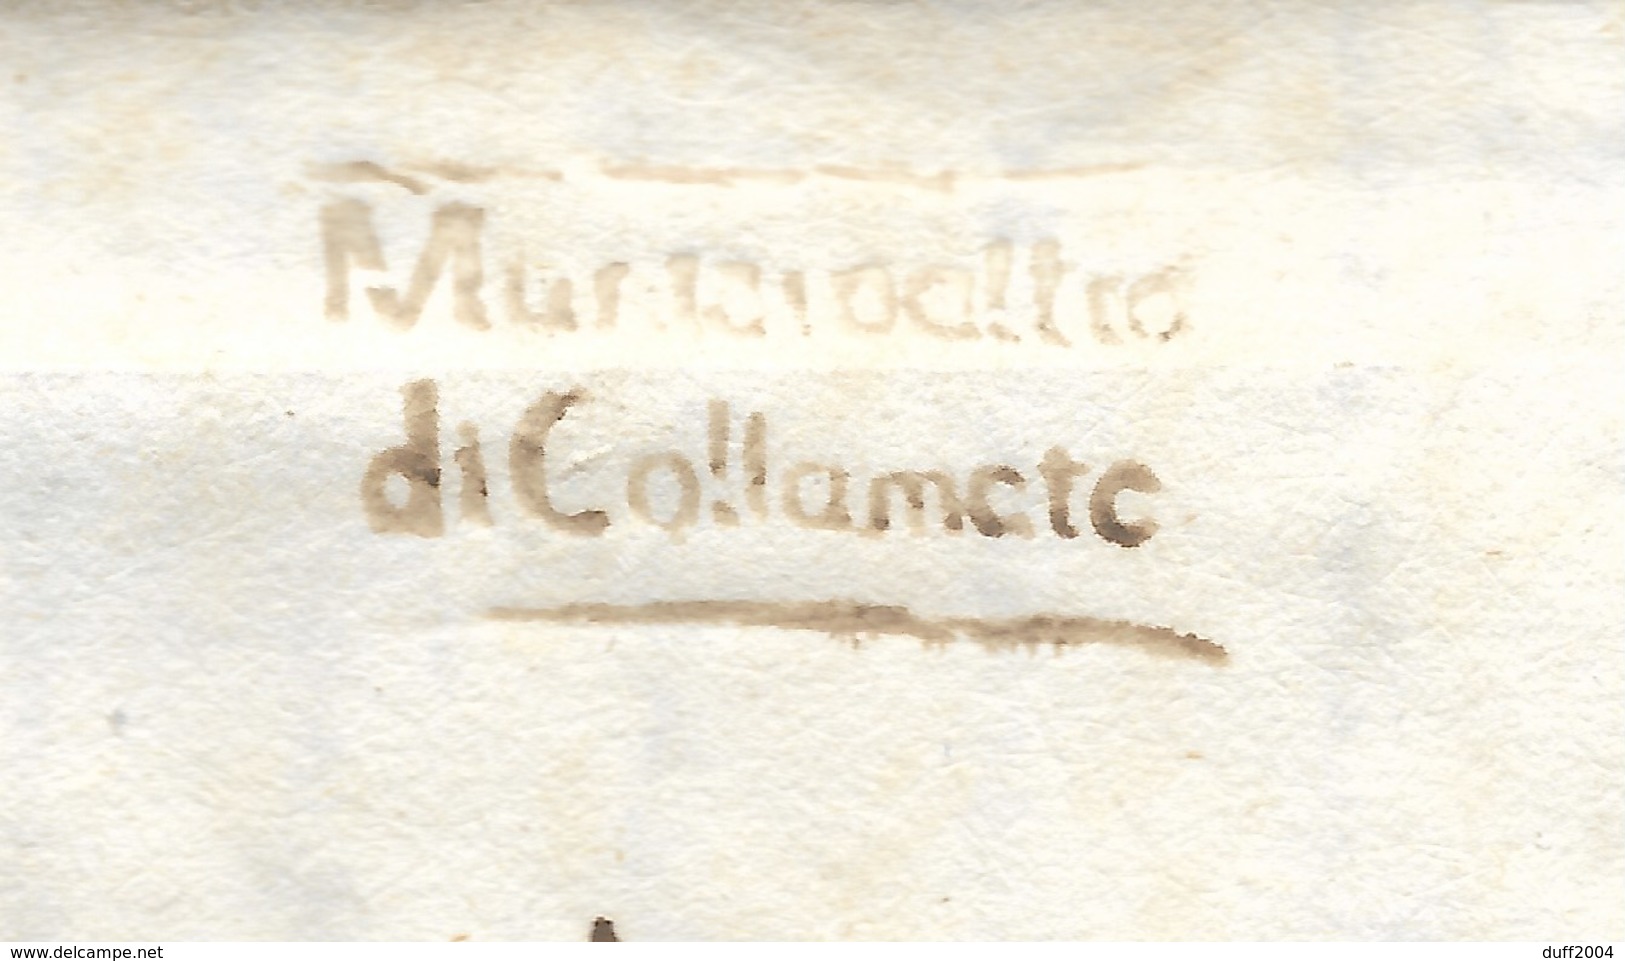 Municipalità
di Collamete
www.delcampe.net
duff2004